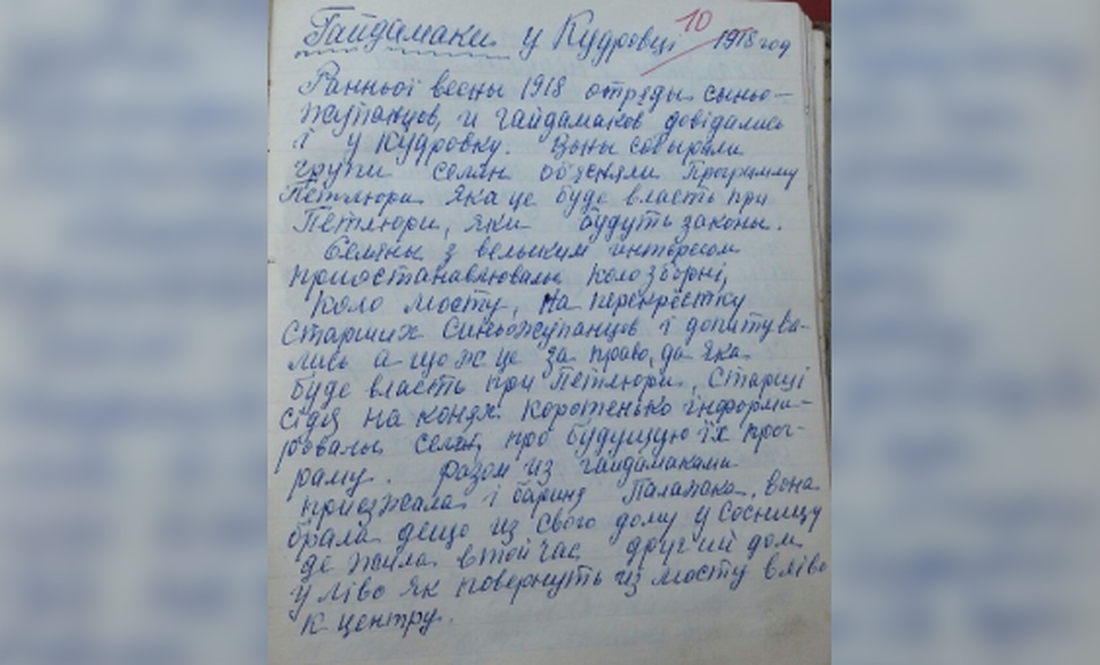 Гайдамаки у Кудровці 10 1918 год
Ранньої весны 1918 отряды сыньо-
жупанцов, и гайдамаков довідались
і у Кудровку. Воны собырали
групи селян обєсняли Программу
Петлюри. Яка це буде власть при
Петлюри, яки будуть законы.
Селяны з велыким интересом
приостанавлювалы коло зборні,
коло мосту, на перекрёстку
старших Синьожупанцов і допитува-
лись а що ж це за право, да яка
буде власть при Петлюри. Старші
сідя на конях коротенько інформи-
ровалы селян, про будущую їх прог-
раму. Разом из гайдамаками
приезжала і барыня Паламака, вона
брала дещо из свого дому у Сосницу
де жила в той час другий дом
у ліво як повернуть из мосту вліво
к центру.